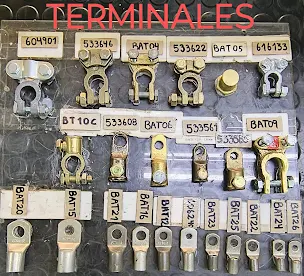 TERMINALES
604901 533646 BAT04 533622 BAT05 616133
BT10C 533608 BAT06 533561 533585 BAT09
BAT20 BAT15 BAT21 BAT16 BAT23 BAT25 BAT22 BAT24